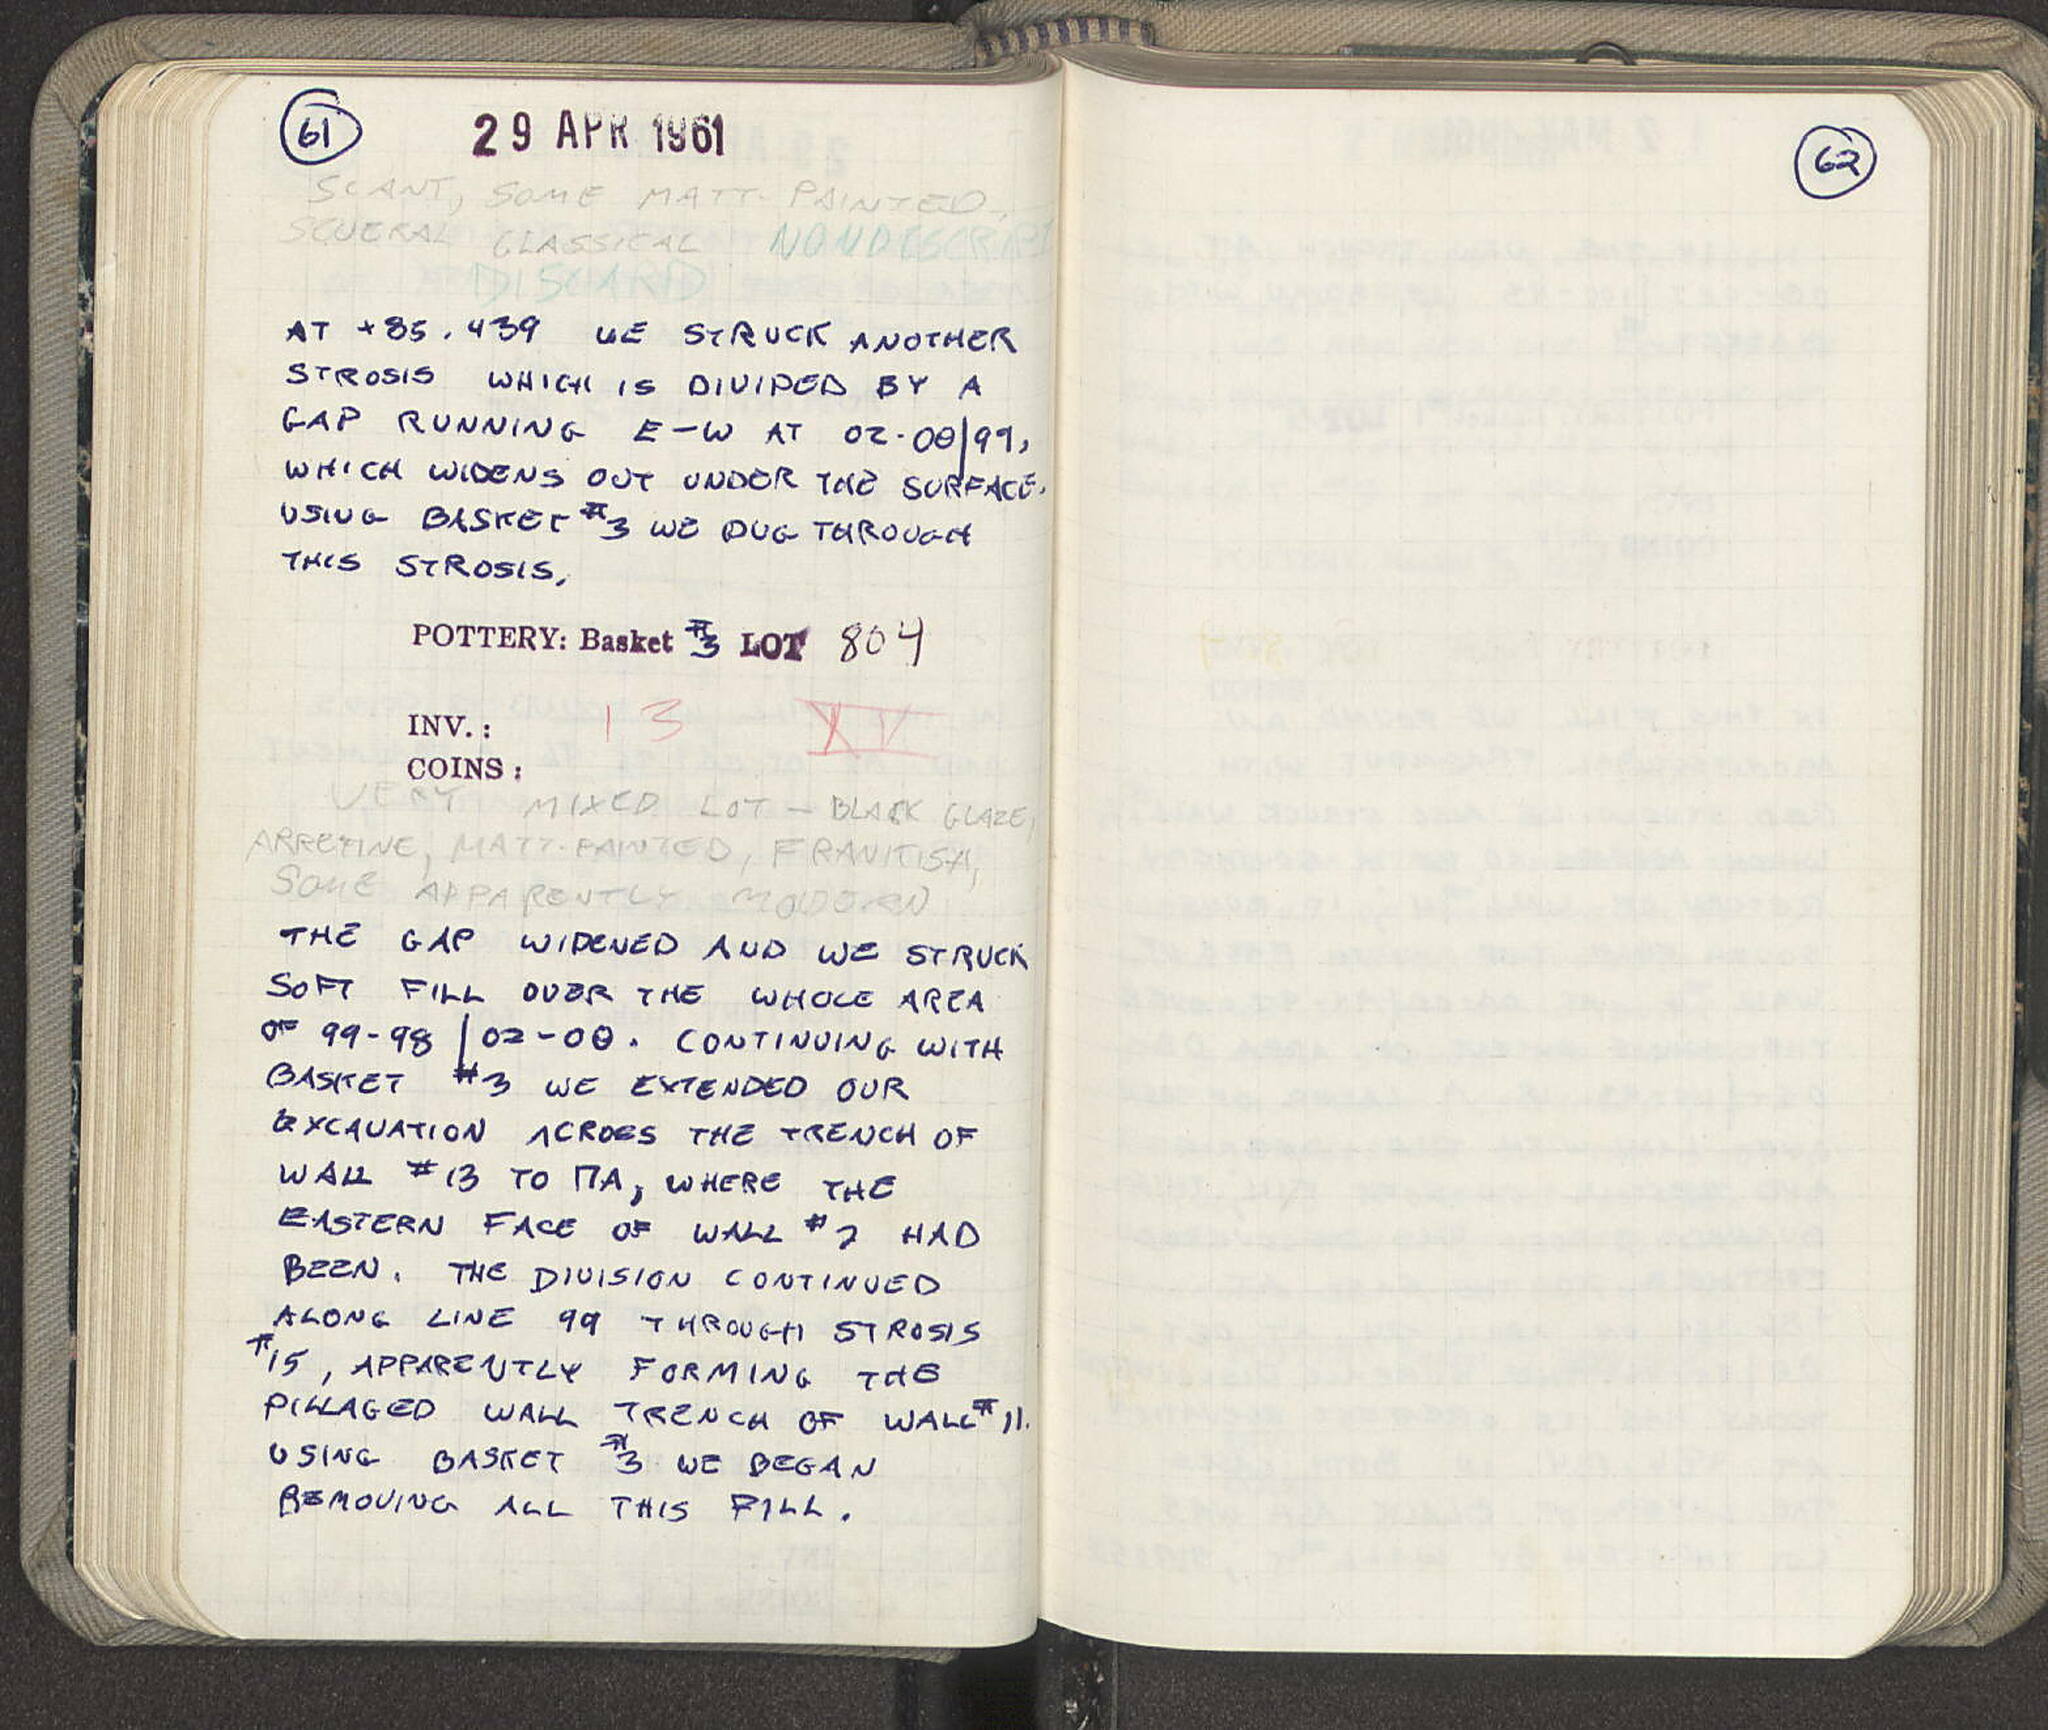 61
29 APR 1961
SCANT, SOME MATT-PAINTED,
SEVERAL CLASSICAL NONDESCRIPT
DISCARD
AT +85.439 WE STRUCK ANOTHER
STROSIS WHICH IS DIVIDED BY A
GAP RUNNING E-W AT 02-00|99,
WHICH WIDENS OUT UNDER THE SURFACE.
USING BASKET #3 WE DUG THROUGH
THIS STROSIS.
POTTERY: Basket #3 LOT 804
INV.: 13 XV
COINS:
VERY MIXED LOT – BLACK GLAZE,
ARRETINE, MATT-PAINTED, FRANKISH,
SOME APPARENTLY MODERN
THE GAP WIDENED AND WE STRUCK
SOFT FILL OVER THE WHOLE AREA
OF 99-98 | 02-00. CONTINUING WITH
BASKET #3 WE EXTENDED OUR
EXCAVATION ACROSS THE TRENCH OF
WALL #13 TO ΠA, WHERE THE
EASTERN FACE OF WALL #2 HAD
BEEN. THE DIVISION CONTINUED
ALONG LINE 99 THROUGH STROSIS
#15, APPARENTLY FORMING THE
PILLAGED WALL TRENCH OF WALL #11.
USING BASKET #3 WE BEGAN
REMOVING ALL THIS FILL.
62